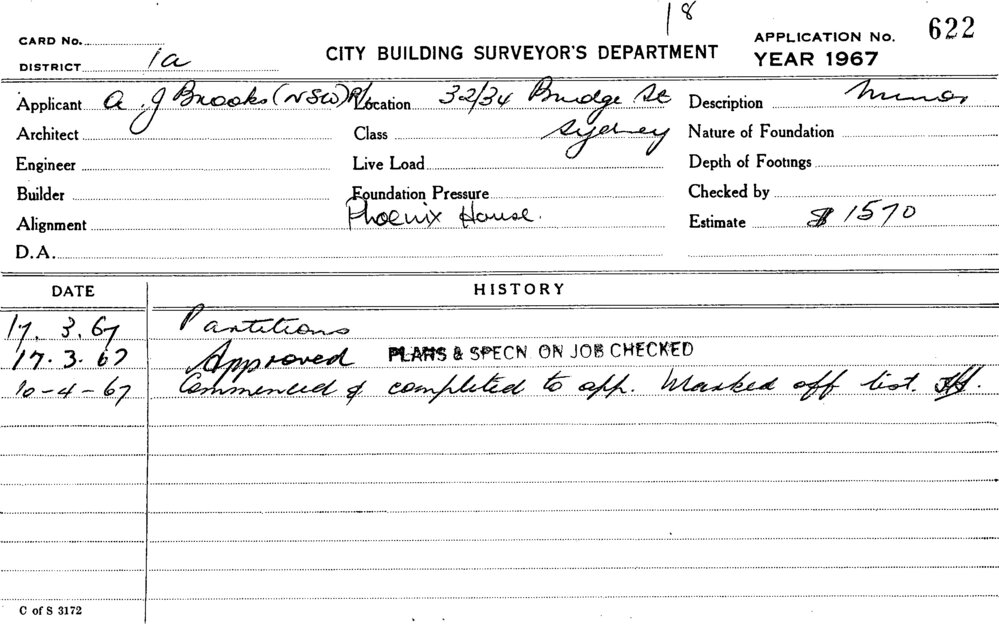 1 8
CARD No. CITY BUILDING SURVEYOR'S DEPARTMENT APPLICATION No. 622
DISTRICT 1a YEAR 1967
Applicant A. J Brooks (NSW) P/L Location 32/34 Bridge St Description Minor
Architect Class Sydney Nature of Foundation
Engineer Live Load Depth of Footings
Builder Foundation Pressure Checked by
Alignment Phoenix House. Estimate $ 1570
D.A.
DATE HISTORY
17. 3. 67 Partitions
17. 3. 67 Approved PLANS & SPECN ON JOB CHECKED
10-4-67 Commenced & completed to app. Marked off list.
C of S 3172